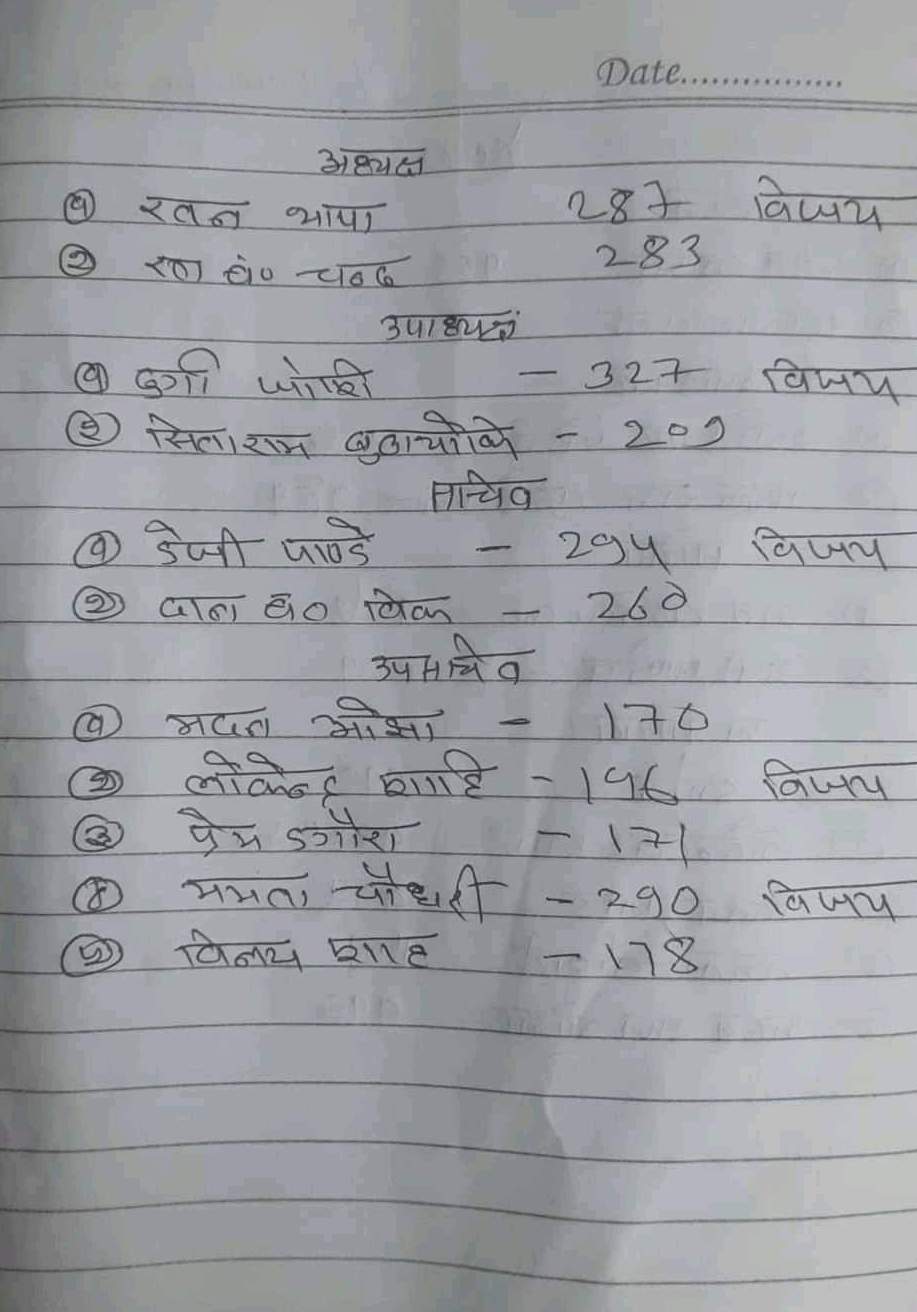 Date................
अध्यक्ष
१ रतन थापा 287 विजय
२ रण ब० चन्द 283
उपाध्यक्ष
१ दुर्गा जोशी - 327 विजय
२ सिताराम बुढाथोकी - 209
सचिव
१ डेजी पाण्डे - 294 विजय
२ दान ब० विक - 260
उपसचिव
१ मदन ओझा - 170
२ लोकेन्द्र शाहि - 196 विजय
३ प्रेम डगौरा - 171
४ ममता चौधरी - 290 विजय
५ विनय शाह - 178